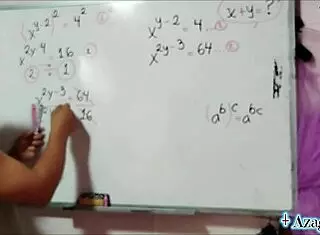 (x^{y-2})^2 = 4^2 ①
x^{y-2} = 4 ... ①
x+y= ?
x^{2y-4} = 16 ②
x^{2y-3} = 64 ... ②
② ÷ ①
x^{2y-3} 64
16
(a^b)^c = a^{bc}
+ Azag